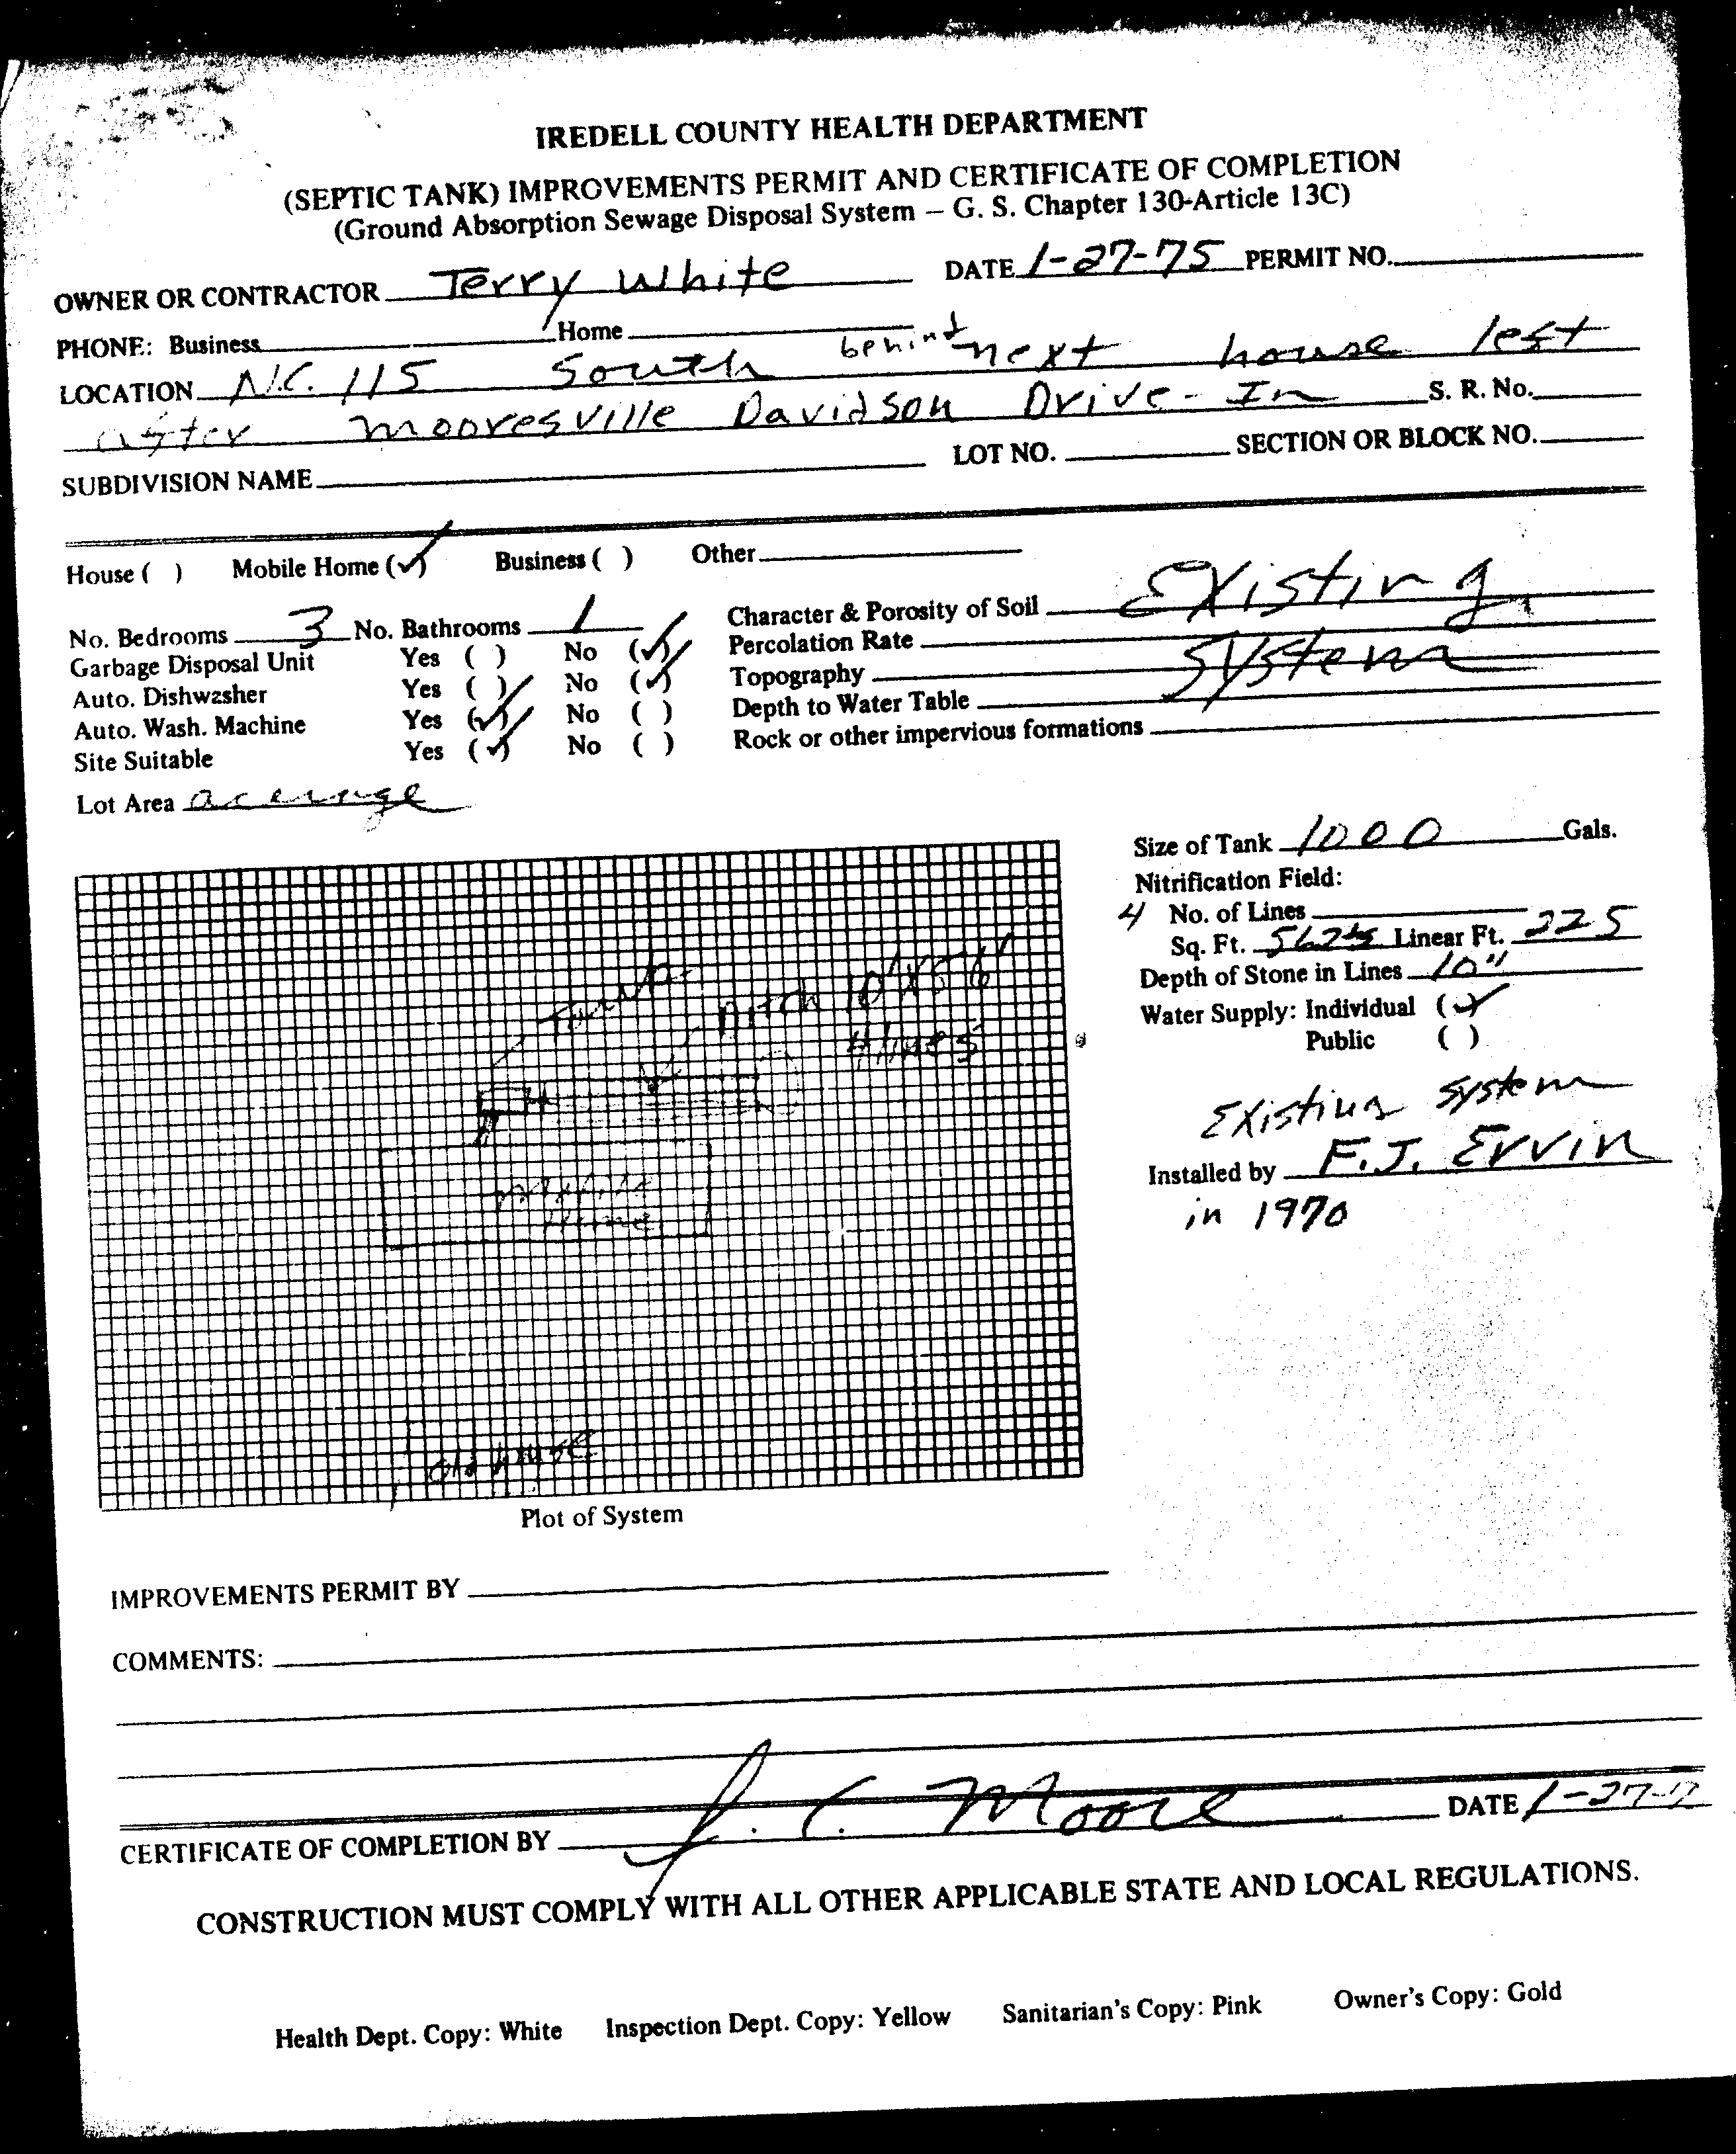 IREDELL COUNTY HEALTH DEPARTMENT
(SEPTIC TANK) IMPROVEMENTS PERMIT AND CERTIFICATE OF COMPLETION
(Ground Absorption Sewage Disposal System – G. S. Chapter 130-Article 13C)
OWNER OR CONTRACTOR Terry White DATE 1-27-75 PERMIT NO.
PHONE: Business Home
LOCATION N.C. 115 South behind next house left
after Mooresville Davidson Drive-In S. R. No.
SUBDIVISION NAME LOT NO. SECTION OR BLOCK NO.
House ( ) Mobile Home (✓) Business ( ) Other
No. Bedrooms 3 No. Bathrooms 1 Character & Porosity of Soil Existing
Garbage Disposal Unit Yes ( ) No (✓) Percolation Rate
Auto. Dishwasher Yes ( ) No (✓) Topography System
Auto. Wash. Machine Yes (✓) No ( ) Depth to Water Table
Site Suitable Yes (✓) No ( ) Rock or other impervious formations
Lot Area acerage
Size of Tank 1000 Gals.
Nitrification Field:
4 No. of Lines
Sq. Ft. Linear Ft. 225
Depth of Stone in Lines 10"
Water Supply: Individual (✓)
Public ( )
Existing system
Installed by F.J. Ervin
in 1970
Tank
Ditch 10'x56'
4 lines
Mobile
Home
old house
Plot of System
IMPROVEMENTS PERMIT BY
COMMENTS:
CERTIFICATE OF COMPLETION BY J. C. Moore DATE 1-27-7
CONSTRUCTION MUST COMPLY WITH ALL OTHER APPLICABLE STATE AND LOCAL REGULATIONS.
Health Dept. Copy: White Inspection Dept. Copy: Yellow Sanitarian's Copy: Pink Owner's Copy: Gold